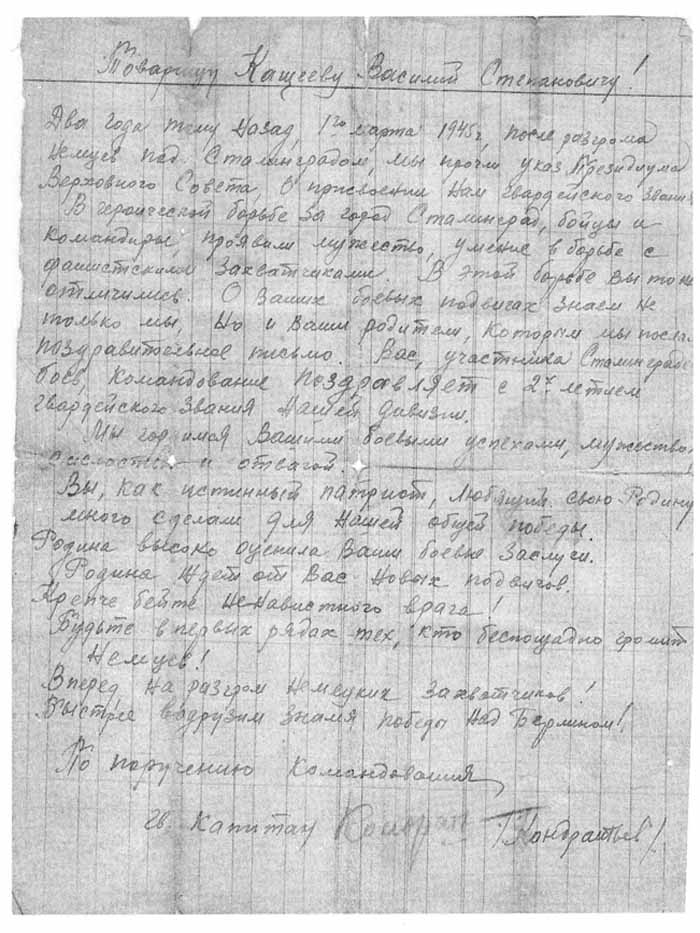 Товарищу Кащееву Василий Степановичу!
Два года тому назад, 1го марта 1945г, после разгрома
Немцев под Сталинградом, мы прочли указ Президиума
Верховного Совета о присвоении нам гвардейского звани
В героической борьбе за город Сталинград, бойцы и
командиры, проявили мужество, умение в борьбе с
фашистскими захватчиками. В этой борьбе вы
отличились. О Ваших боевых подвигах знаем не
только мы, но и Ваши родители, которым мы посла
поздравительное письмо. Вас, участника Сталинград
боев, командование поздравляет с 2х летием
гвардейского звания нашей дивизии.
Мы гордимся Вашими боевыми успехами, мужество
и отвагой.
Вы, как истинный патриот, любящий свою Родину
много сделали для нашей общей победы.
Родина высоко оценила Ваши боевые заслуги.
Родина ждет от Вас новых подвигов.
Крепче бейте ненавистного врага!
Будьте в первых рядах тех, кто беспощадно громит
Немцев!
Вперед на разгром немецких захватчиков!
Быстрее водрузим знамя победы над Берлином!
По поручению командования
гв. капитан /Кондратьев/